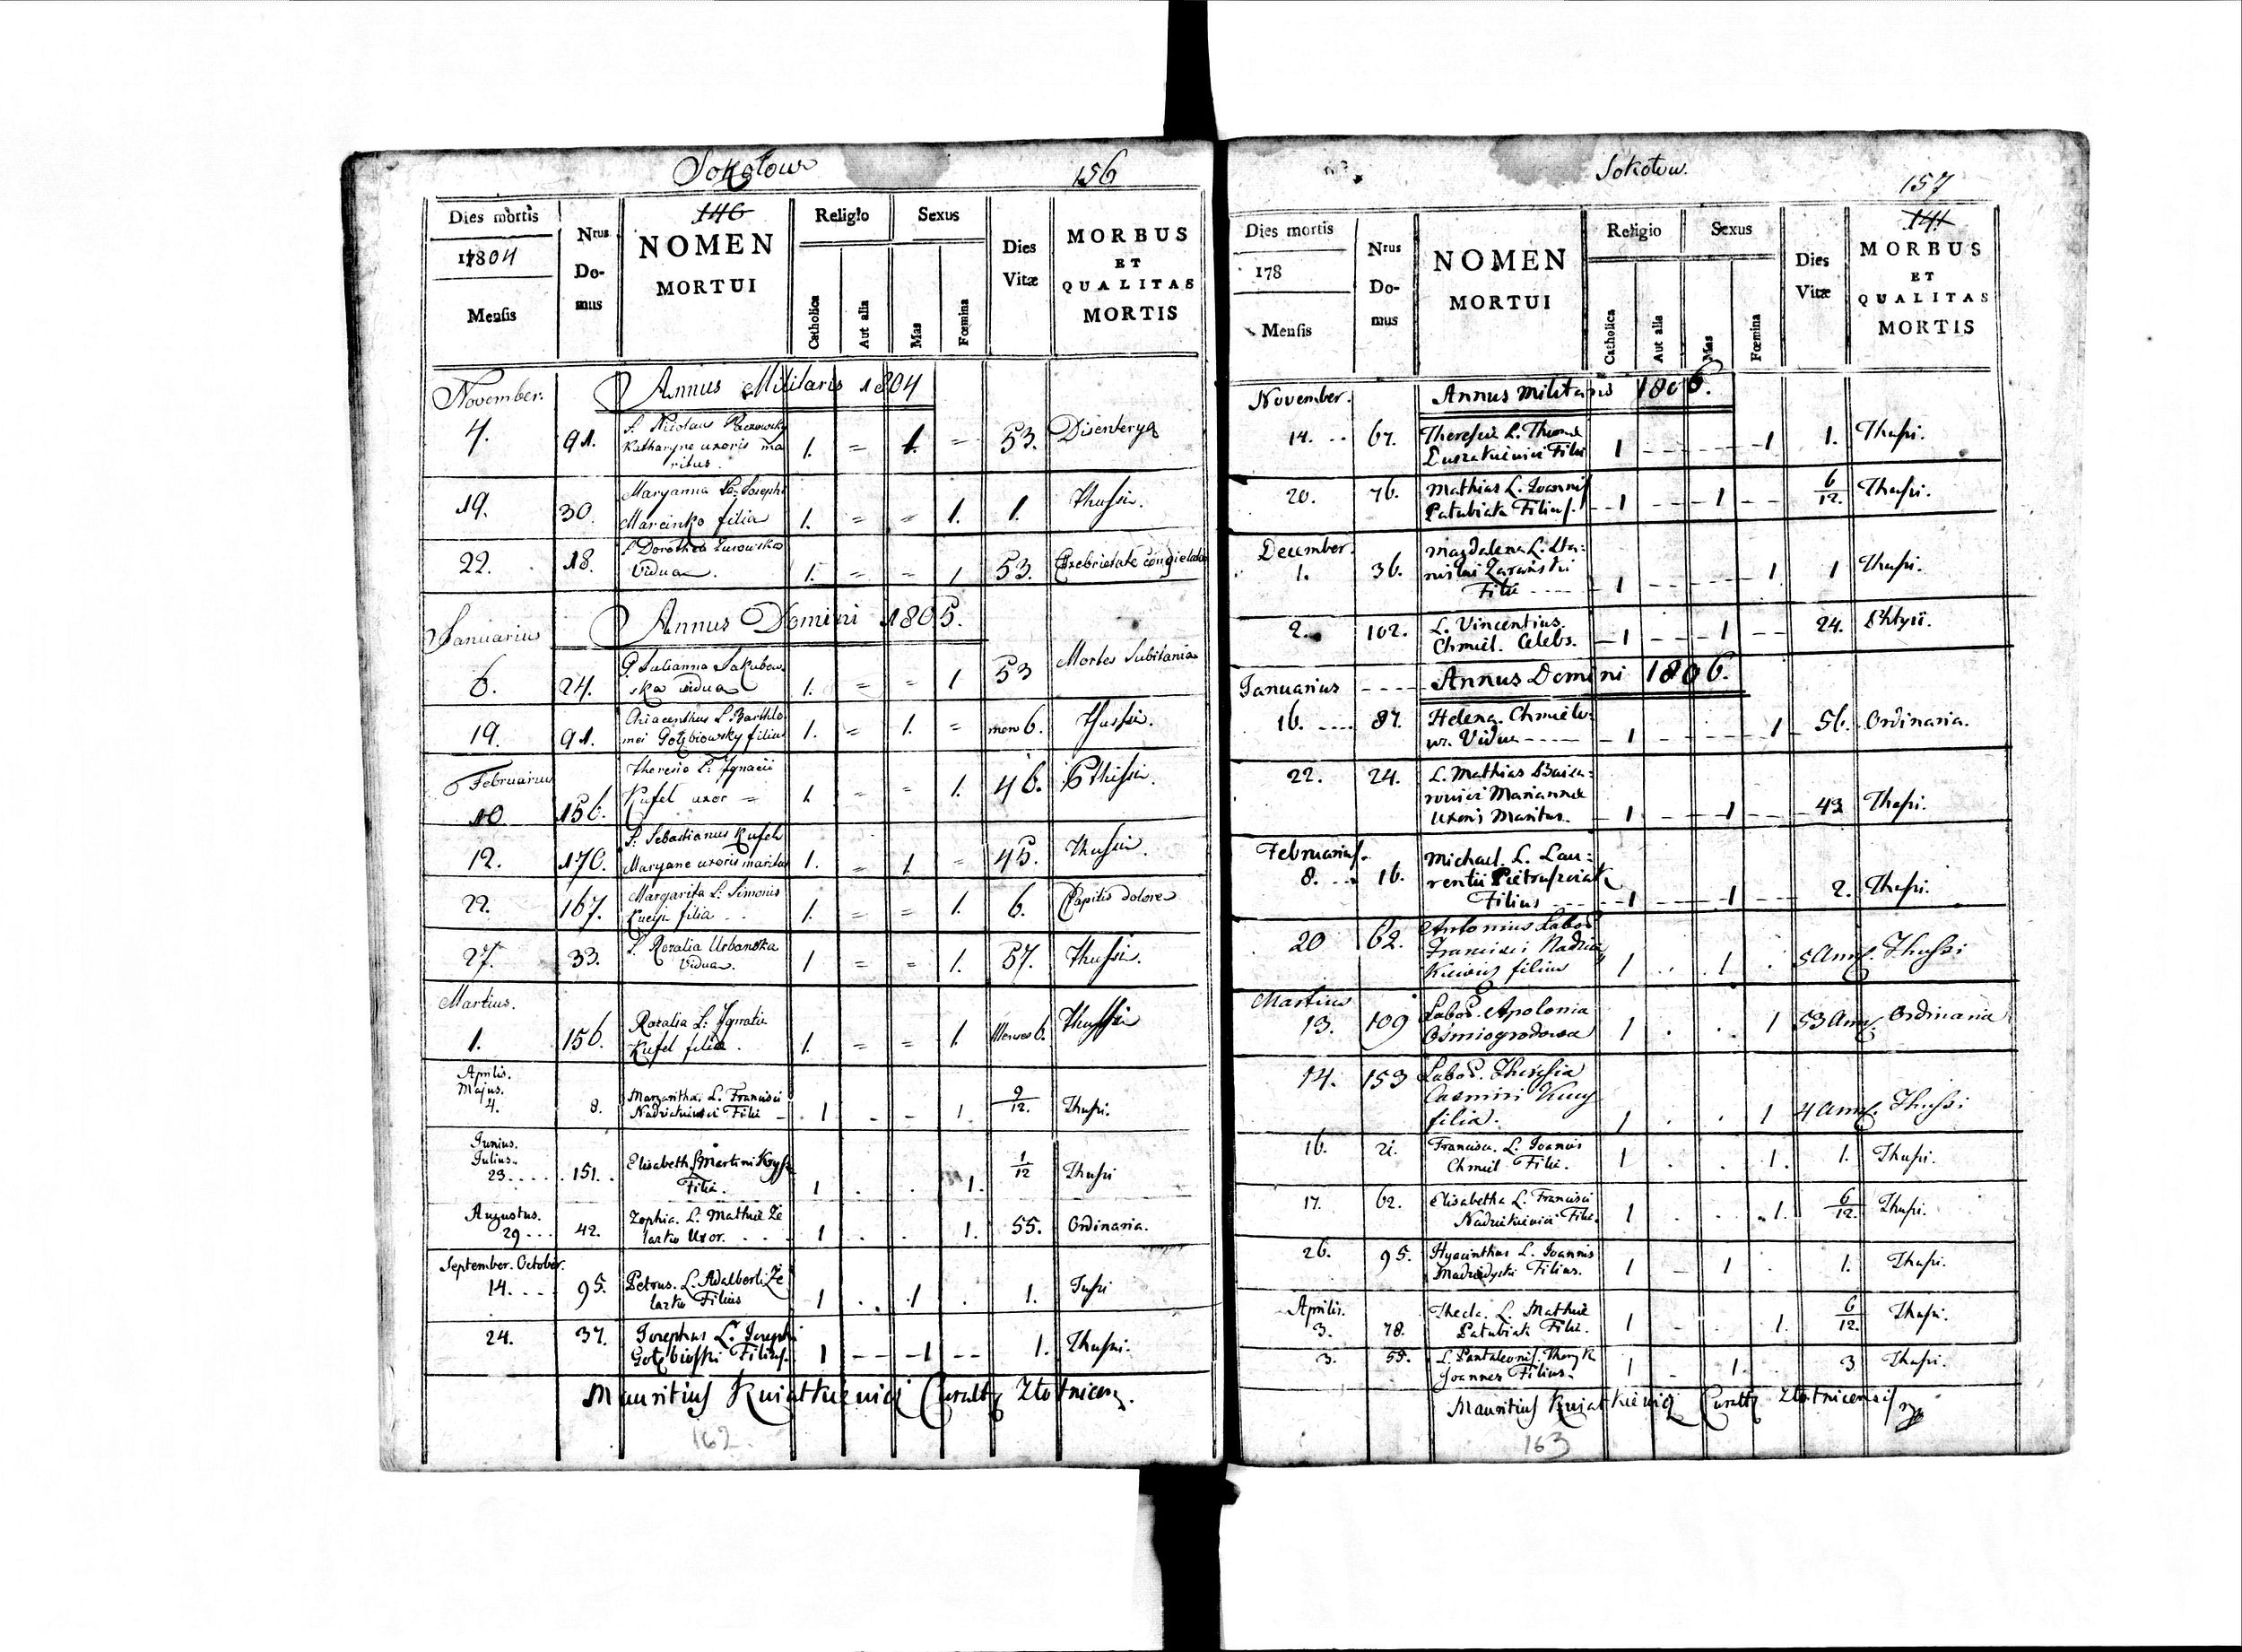 Sokołow
156
Dies mortis
17804
Mensis
Nrus
Do-
mus
146
NOMEN
MORTUI
Religio
Catholica
Aut alia
Sexus
Mas
Fœmina
Dies
Vitæ
MORBUS
ET
QUALITAS
MORTIS
November.
Annus Militaris 1804
4. 91. L. Nicolaus
Katharyne uxoris ma
ritus. 1. = 1. = 53. Disenterya
19. 30. Maryanna L. Josephi
Marcinko filia 1. = = 1. 1. Thussi.
22. 18. L. Dorothea Zurowska
vidua. 1. = = 1 53.
Annus Domini 1805.
Januarius
6. 24. Julianna Jakubow
ska vidua 1. = = 1 53 Mortes Subitania
19. 91. L. Barthlo
mei Gołębiowsky filius 1. = 1. = mens 6. Thussi.
Februarius
10 156. Theresia L. Ignacii
Kufel uxor = 1. = = 1. 46. Pthissi.
12. 170. L. Sebastianus Kufel
Maryane uxoris maritus 1. = 1. = 45. Thussi.
22. 167. Margarita L. Simonis
filia 1. = = 1. 6. Capitis dolore
27. 33. L. Rozalia Urbanska
Vidua. 1 = = 1. 57. Thussi.
Martius.
1. 156. Rozalia L. Ignatii
Kufel filia. 1. = = 1. Menses 6. Thussi
Aprilis.
Majus.
4. 8. Margaritha. L. Francisci
Filia 1 . - 1. 9/12. Thussi.
Junius.
Julius.
23.... 151. Elisabeth L. Martini
Filia. 1 . . 1. 1/12 Thussi
Augustus.
29... 42. Zophia. L. Mathiæ Ze
lazko Uxor. 1 . . 1. 55. Ordinaria.
September. October.
14.... 95. Petrus. L. Adalberti Że
lazko Filius 1 . . 1 . 1. Tussi
24. 37. Josephus L. Josephi
Gołębioski Filius. 1 -- -1 -- 1. Thussi.
Mauritius Kwiatkiewicz Curatus Złotnicen.
162.
Sokołow.
157
Dies mortis
178
Mensis
Nrus
Do-
mus
NOMEN
MORTUI
Religio
Catholica
Aut alia
Sexus
Mas
Fœmina
Dies
Vitæ
141
MORBUS
ET
QUALITAS
MORTIS
November.
Annus militaris 1806.
14. .. 67. Theresia L. Thomæ
Filia 1 ---- 1 1. Thussi.
20. 76. Mathias L. Joannis
Patubiak Filius. 1 -- 1 -- 6/12. Thussi.
December.
1. 36. Magdalena L. Sta:
nislai Zarański
Filia ---- 1 ---- 1 1 Thussi.
2. 102. L. Vincentius.
Chmiel. Celebs. 1 -- 1 -- 24.
Januarius ---- Annus Domini 1806.
16. .... 87. Helena. Chmielo:
wa. Vidua ---- 1 ---- 1 56. Ordinaria.
22. 24. L. Mathias
Mariannæ
Uxoris Maritus. 1 -- 1 -- 43 Thussi.
Februarius.
8. ... 16. Michael. L. Lau:
rentii Pietruszciak
Filius --- 1 --- 1 --- 2. Thussi.
20 62. Antonius Labor
Francisci
filius 1 . . 1 . 5 Ann. Thussi
Martius
13. 109 Labor. Apolonia
Osmiogrodowa 1 . . 1 53 Ann. Ordinaria
14. 153 Labor. Theresia
Casmiri
filia. 1 . . 1 4 Ann. Thussi
16. 21. Francisca. L. Joannis
Chmiel Filia. 1 . . 1. 1. Thussi.
17. 62. Elisabetha L. Francisci
Filia. 1 . . 1. 6/12. Thussi.
26. 95. Hyacinthus L. Joannis
Filius. 1 - 1 . 1. Thussi.
Aprilis.
3. 78. Thecla. L. Mathiæ
Patubiak Filia. 1 - . 1. 6/12. Thussi.
3. 55. L. Pantaleonis.
Joannes Filius. 1 - 1. . 3 Thussi.
Mauritius Kwiatkiewicz Curatus Złotnicensis
163